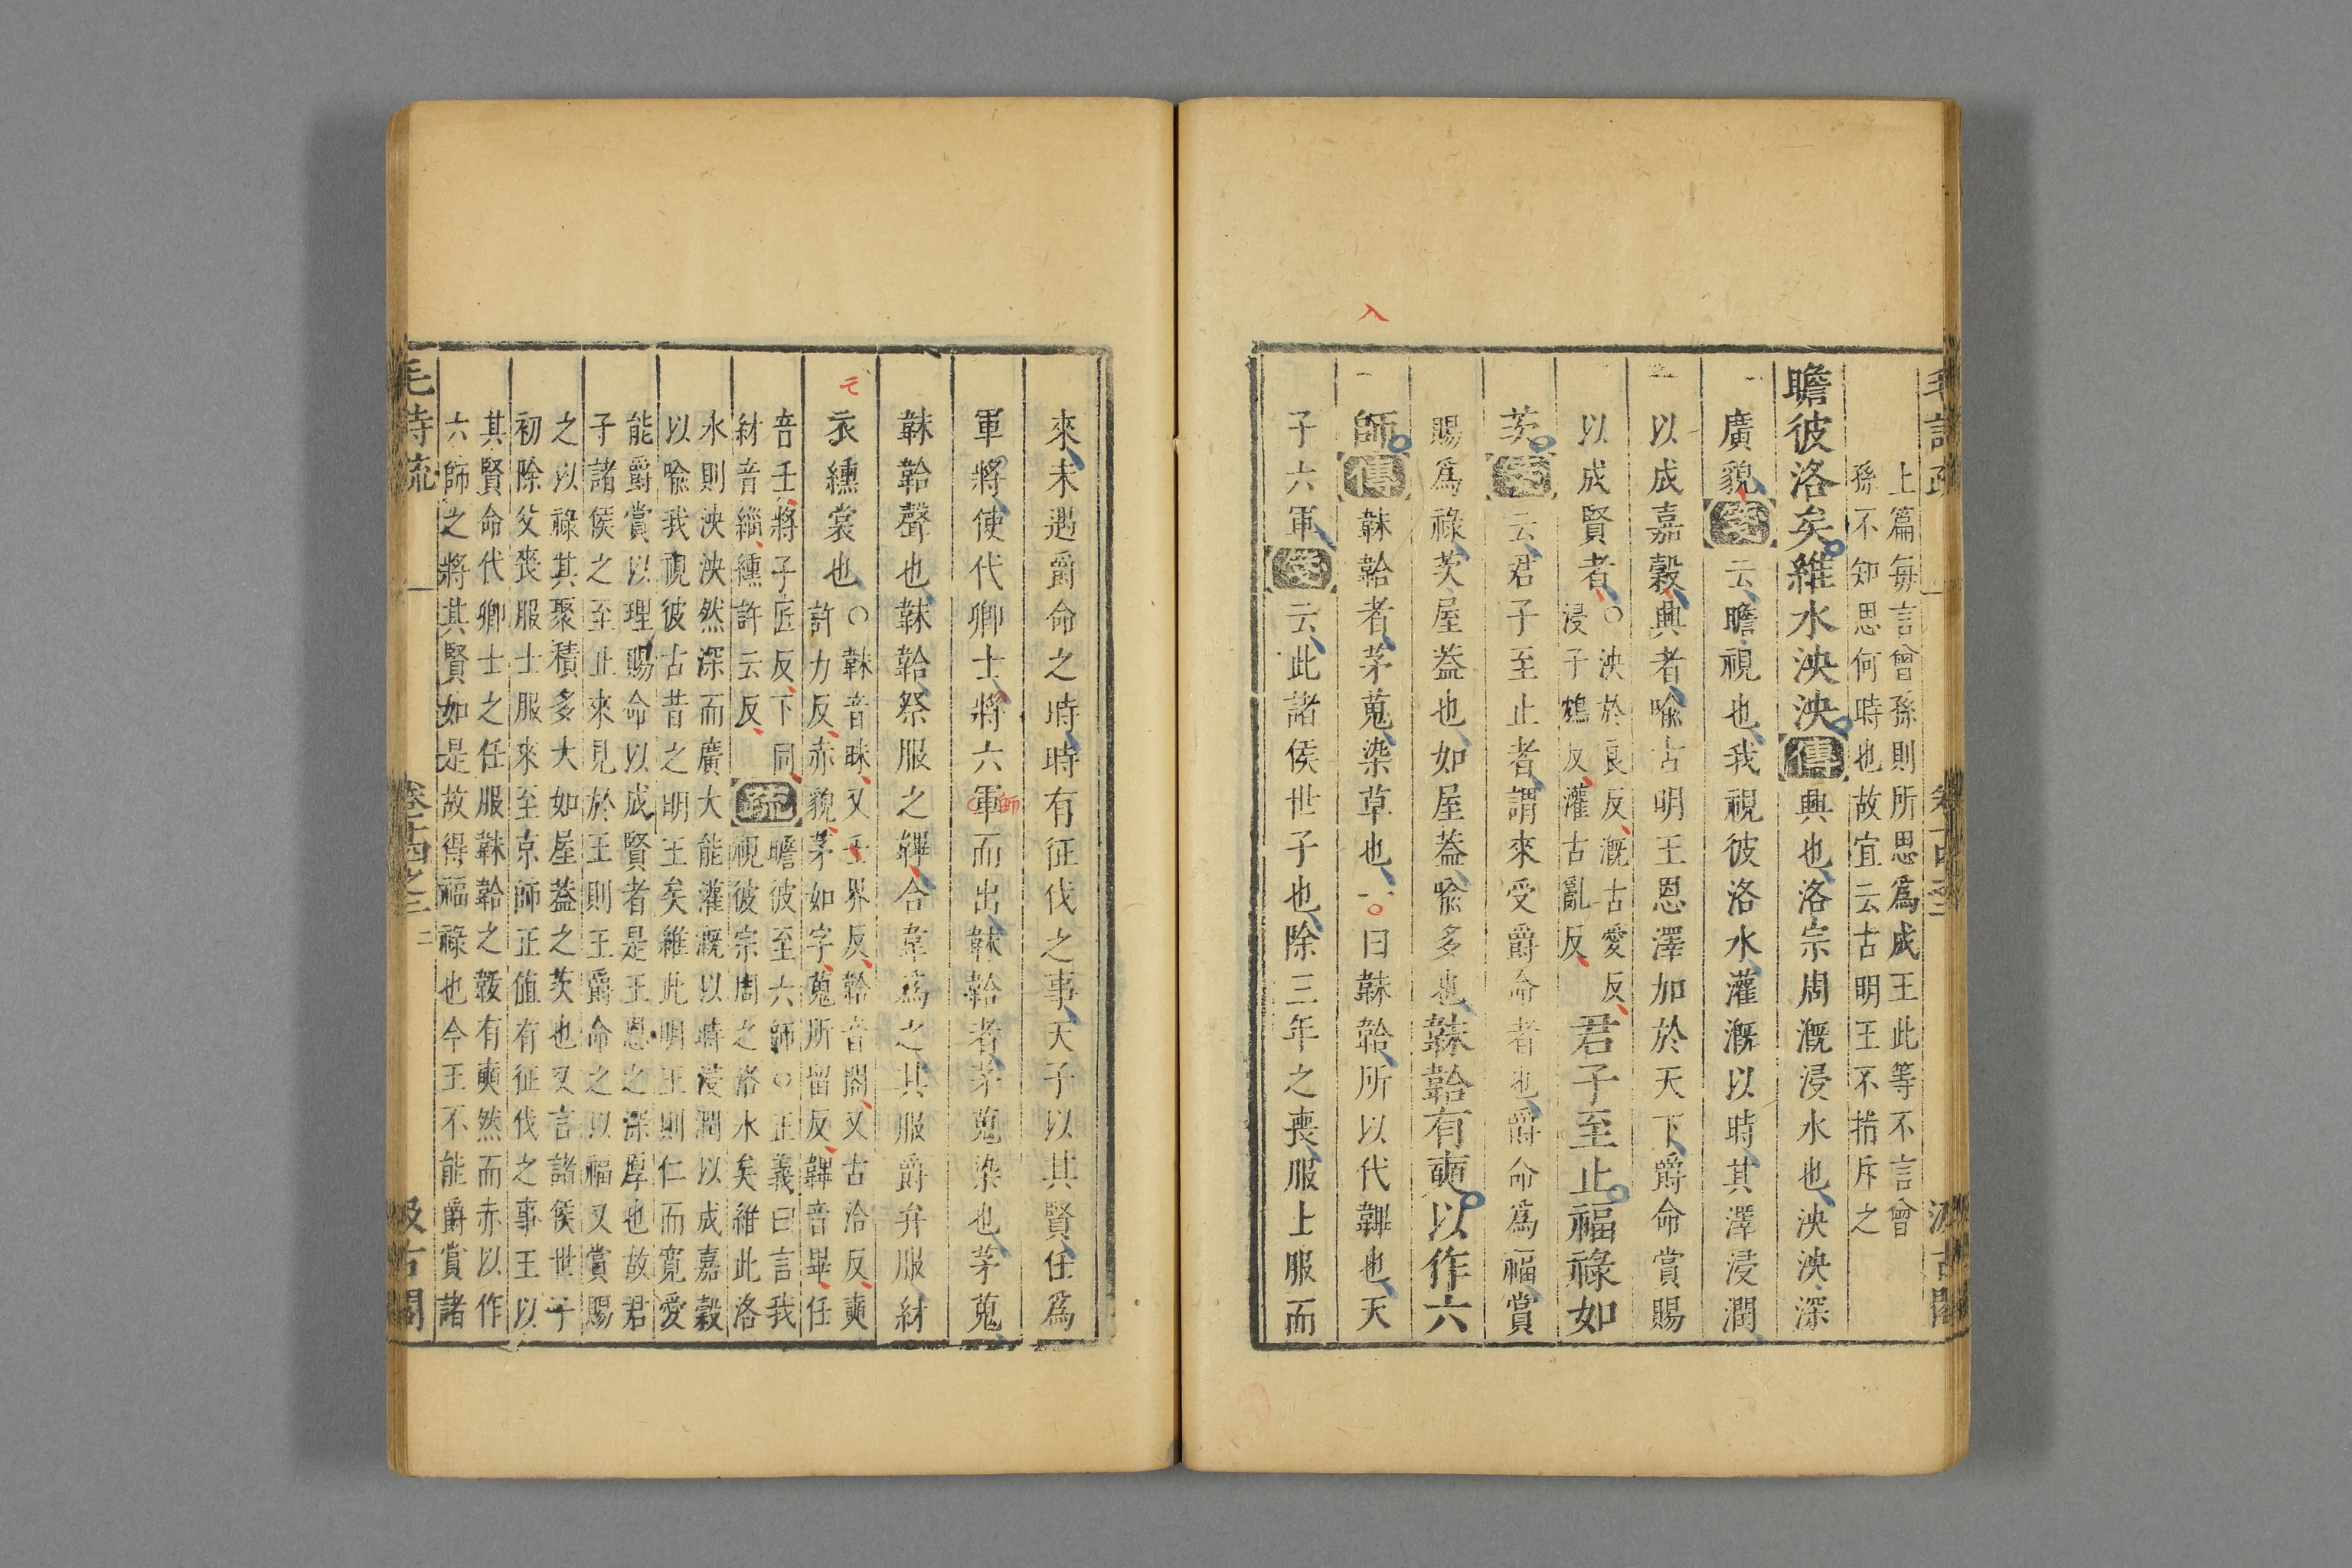 上篇每言曾孫則所思爲成王此等不言曾
孫不知思何時也故宜云古明王不指斥之
瞻彼洛矣維水泱泱傳興也洛宗周漑浸水也泱泱深
廣貌箋云瞻視也我視彼洛水灌漑以時其澤浸潤
以成嘉穀興者喩古明王恩澤加於天下爵命賞賜
以成賢者○泱於良反漑古愛反
浸子鴆反灌古亂反
君子至止福祿如
茨箋云君子至止者謂來受爵命者也爵命爲福賞
賜爲祿茨屋葢也如屋葢喩多也韎韐有奭以作六
師傳韎韐者茅蒐染草也一曰韎韐所以代韠也天
子六軍箋云此諸侯世子也除三年之喪服士服而
來未遇爵命之時時有征伐之事天子以其賢任爲
軍將使代卿士將六軍而出韎韐者茅蒐染也茅蒐
師
韎韐聲也韎韐祭服之韠合韋爲之其服爵弁服紂
衣纁裳也○韎音昧又王界反韐音閤又古洽反奭
許力反赤貌茅如字蒐所留反韠音畢任
音壬將子匠反下同
紂音緇纁許云反
疏瞻彼至六師○正義曰言我
視彼宗周之洛水矣維此洛
水則泱泱然深而廣大能灌漑以時浸潤以成嘉穀
以喩我視彼古昔之明王矣維此明王則仁而寬愛
能爵賞以理賜命以成賢者是王恩之深厚也故君
子諸侯之至止來見於王則王爵命之以福又賞賜
之以祿其聚積多大如屋葢之茨也又言諸侯世子
初除父喪服士服來至京師正值有征伐之事王以
其賢命代卿士之任服韎韐之韍有奭然而赤以作
六師之將其賢如是故得福祿也今王不能爵賞諸
毛詩疏
卷十四之二
二
汲古閣